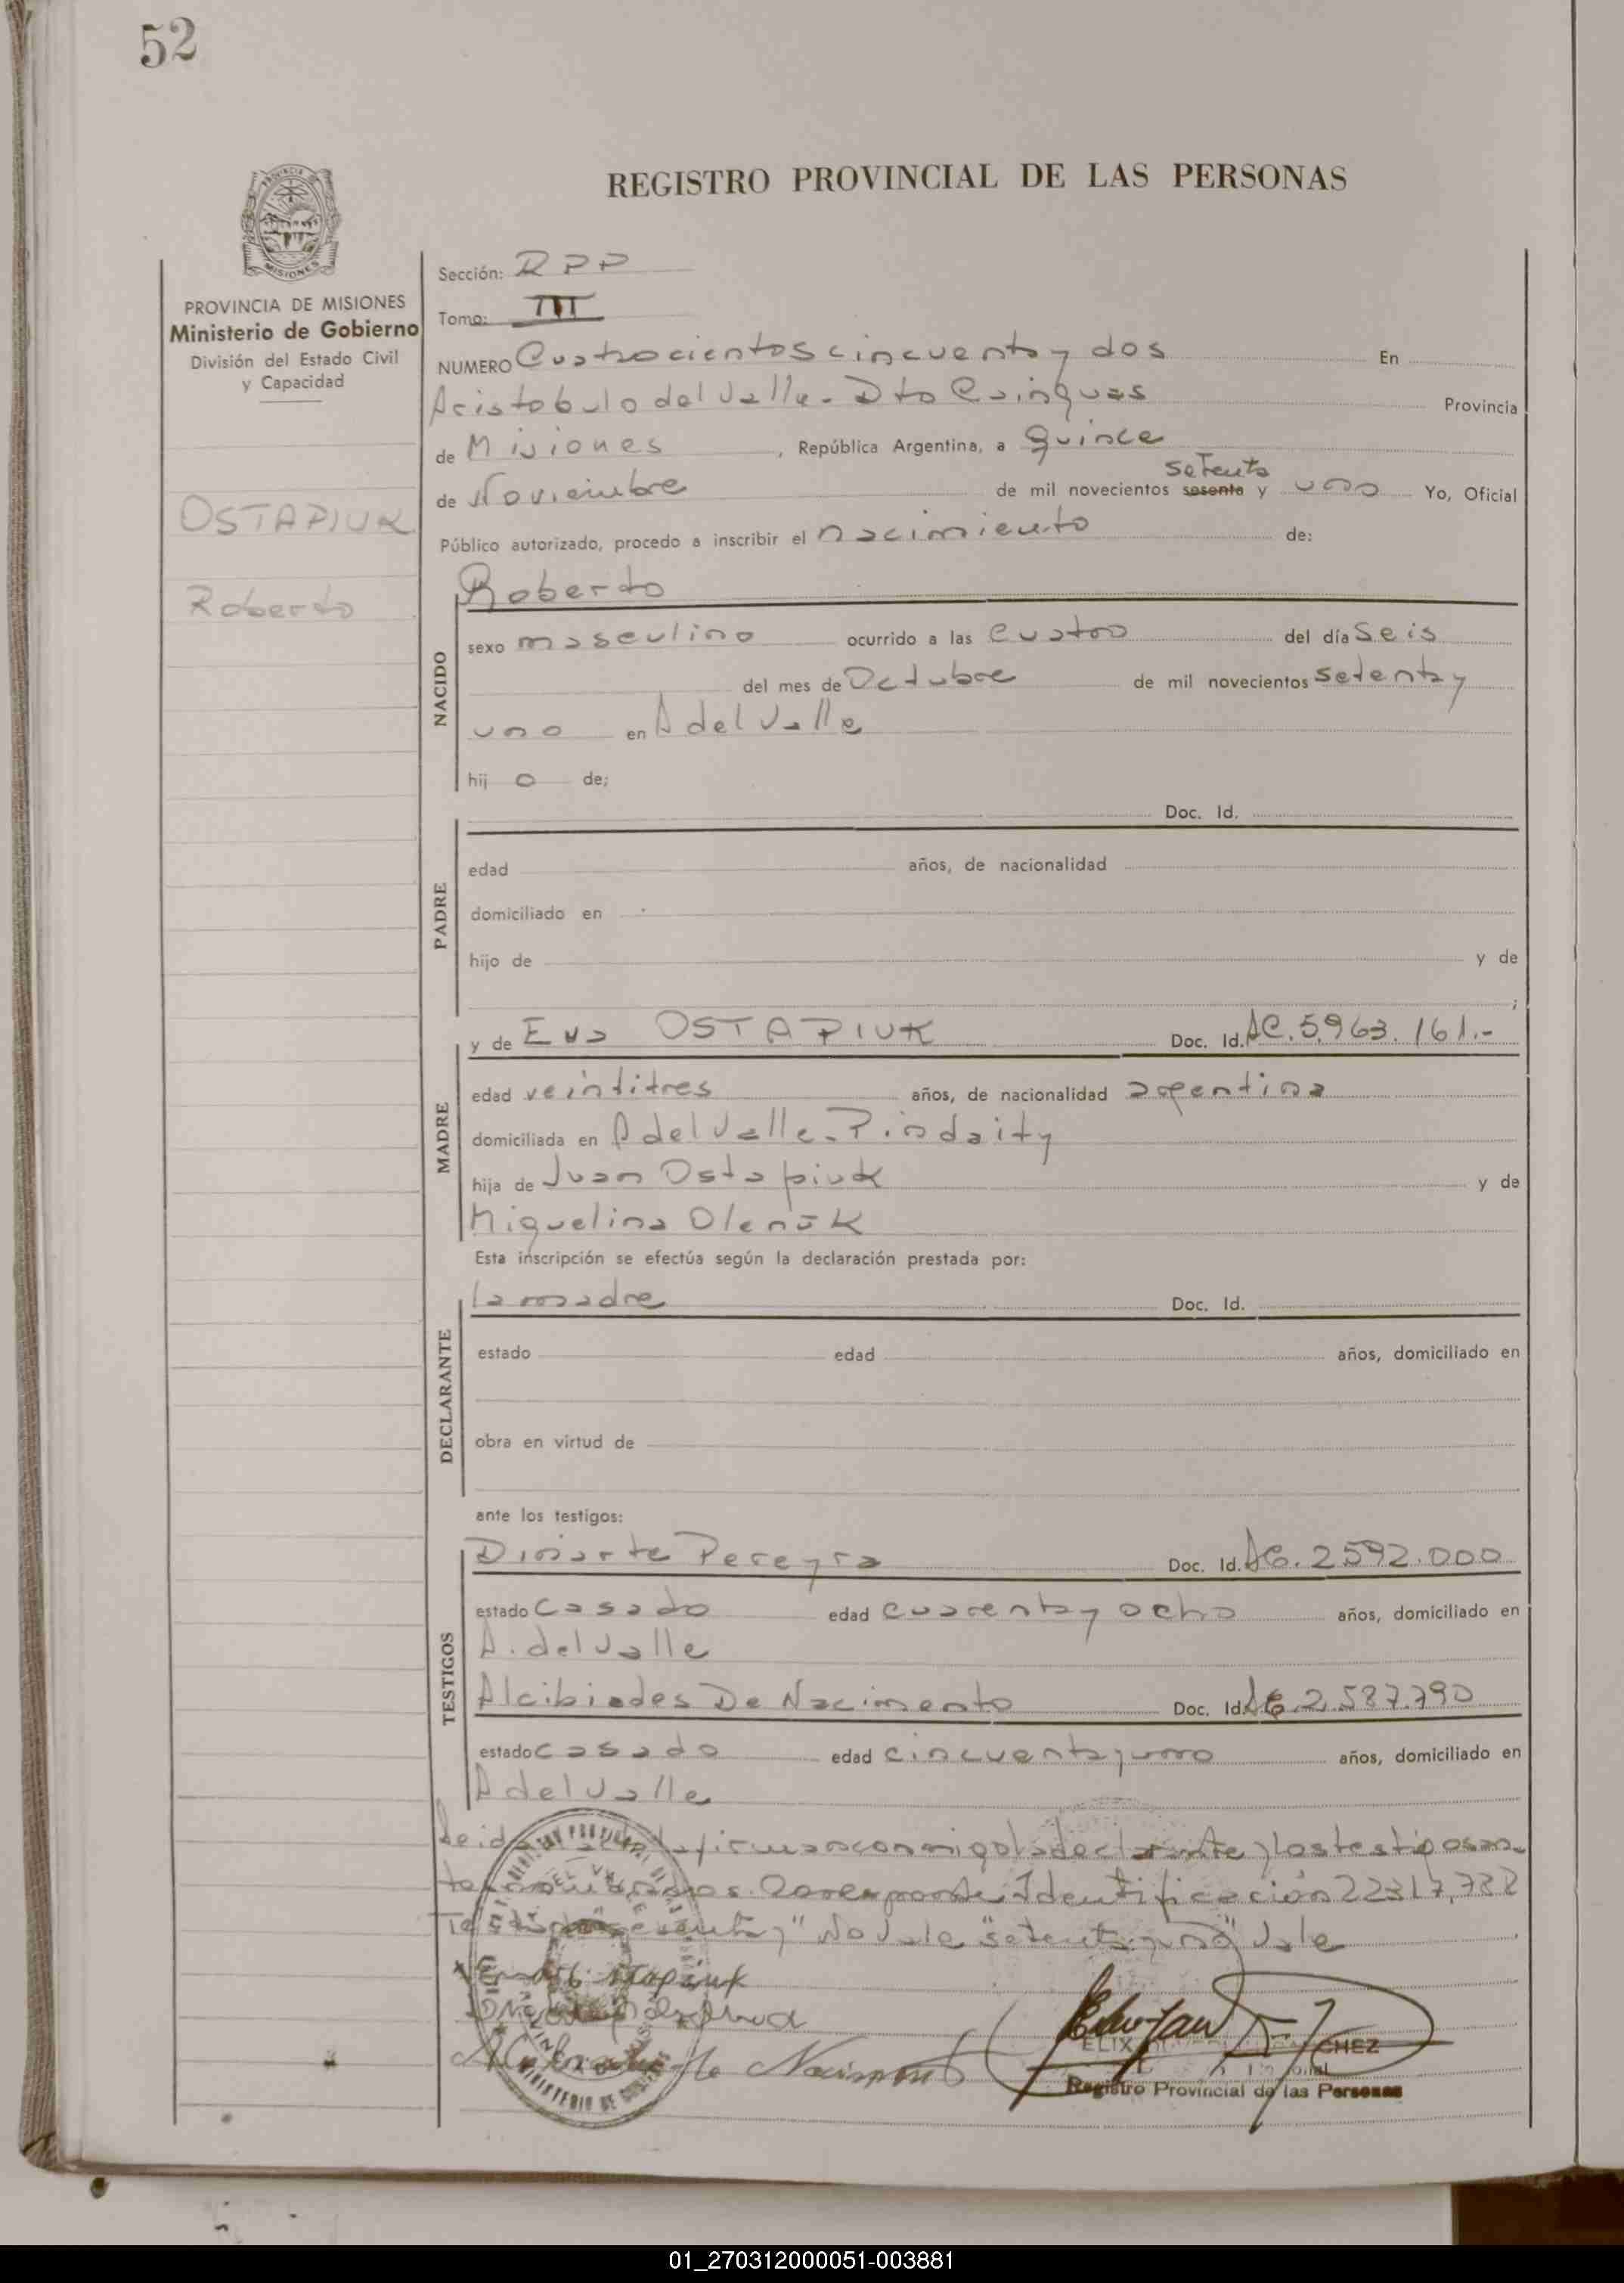 52
REGISTRO PROVINCIAL DE LAS PERSONAS
PROVINCIA DE MISIONES
Ministerio de Gobierno
División del Estado Civil
y Capacidad
OSTAPIUK
Roberto
Sección: RPP
Tomo: III
NUMERO Cuatrocientos cincuenta y dos En
Aristobulo del Valle - Dto Cainguas Provincia
de Misiones, República Argentina, a quince
setenta
de Noviembre de mil novecientos sesenta y uno Yo, Oficial
Público autorizado, procedo a inscribir el nacimiento de:
Roberto
NACIDO
sexo masculino ocurrido a las cuatro del día seis
del mes de Octubre de mil novecientos setenta y
uno en A del Valle
hij o de;
Doc. Id.
PADRE
edad años, de nacionalidad
domiciliado en
hijo de y de
;
MADRE
y de Eva OSTAPIUK Doc. Id. LC. 5.963.161.-
edad veintitres años, de nacionalidad argentina
domiciliada en A del Valle - Pindaity
hija de Juan Ostapiuk y de
Miguelina Oleñuk
Esta inscripción se efectúa según la declaración prestada por:
DECLARANTE
la madre Doc. Id.
estado edad años, domiciliado en
obra en virtud de
ante los testigos:
TESTIGOS
Dinarte Pereyra Doc. Id. 2592.000
estado casado edad cuarenta y ocho años, domiciliado en
A. del Valle
Alcibiades De Nacimento Doc. Id. 2.587.790
estado casado edad cincuenta y uno años, domiciliado en
A del Valle
firman conmigo la declarante y los testigos
Identificación 22317.782
No Vale "setenta y uno" Vale
Nacimento
CHEZ
Registro Provincial de las Personas
01_270312000051-003881